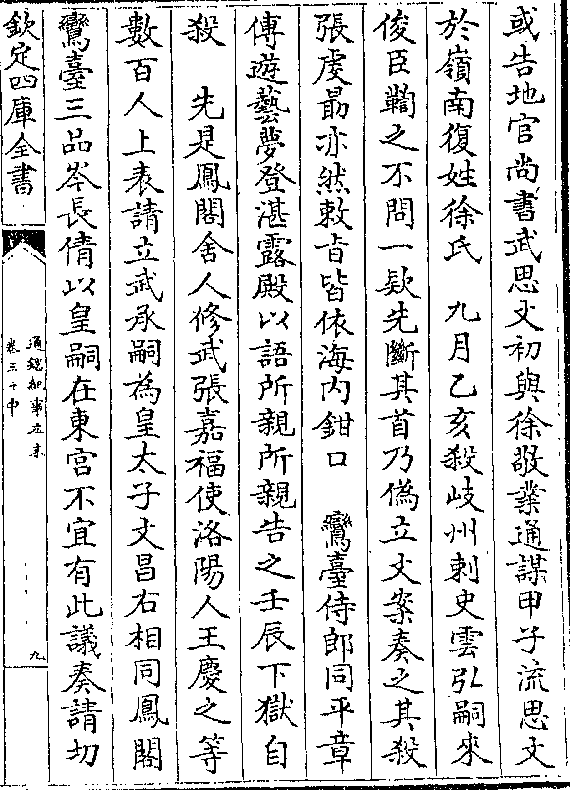 或告地官尚書武思文初與徐敬業通謀甲子流思文
於嶺南復姓徐氏　九月乙亥殺岐州刺史雲弘嗣來
俊臣鞫之不問一款先斷其首乃偽立文案奏之其殺
張虔勗亦然敕旨皆依海内鉗口　鸞臺侍郎同平章
傅遊藝夢登湛露殿以語所親所親告之壬辰下獄自
殺　先是鳳閣舍人修武張嘉福使洛陽人王慶之等
數百人上表請立武承嗣為皇太子文昌右相同鳳閣
鸞臺三品岑長倩以皇嗣在東宫不宜有此議奏請切
欽定四庫全書
通鑑紀事本末
卷三十中
九